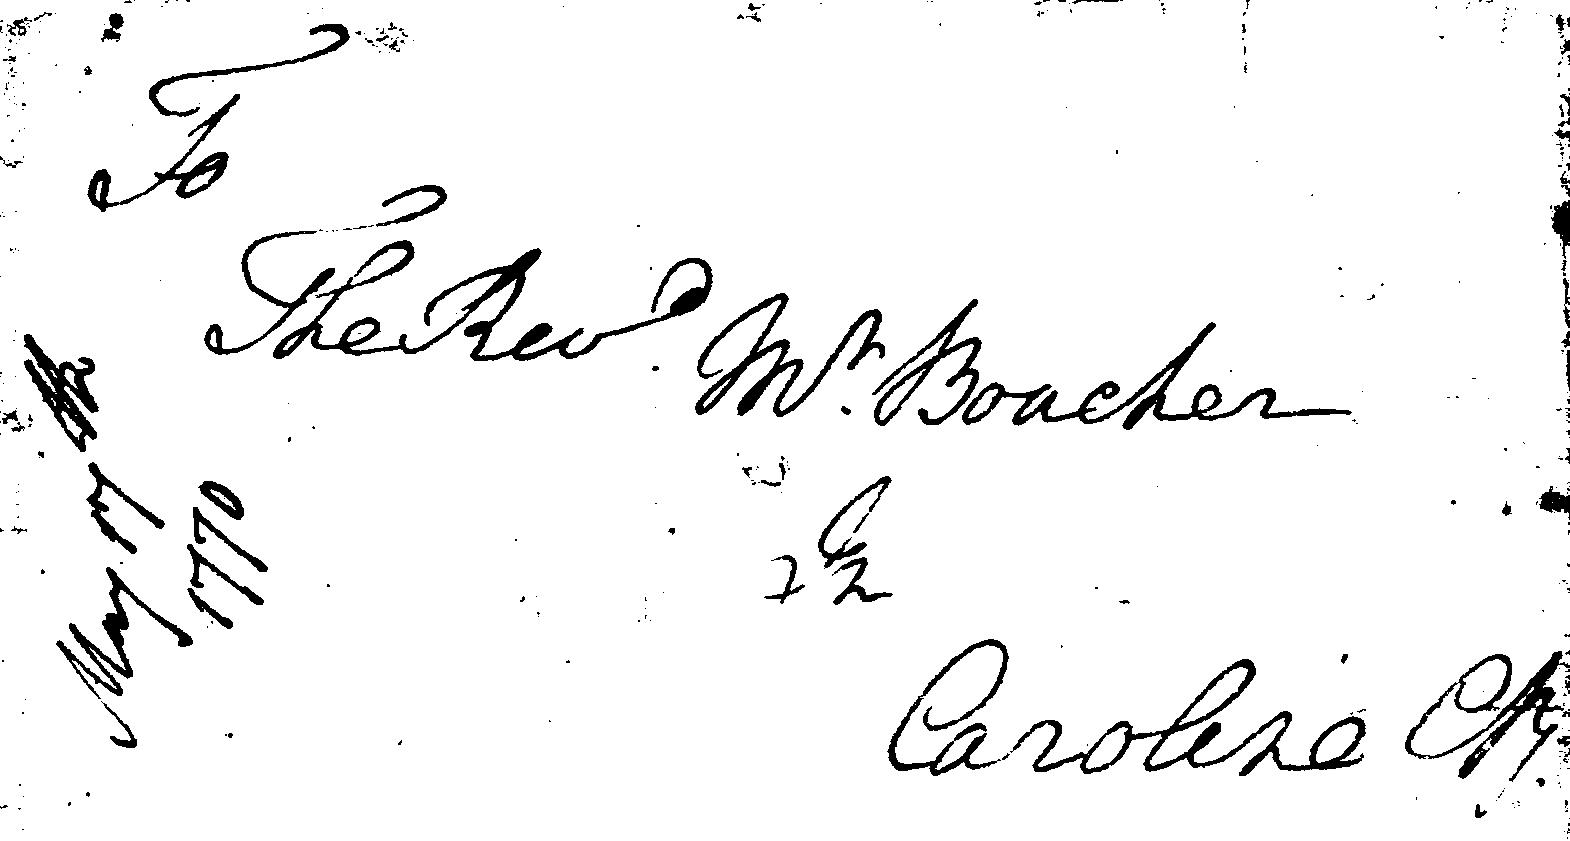 To
The Revd. Mr. Boucher
In
Caroline Cty.
May
1770